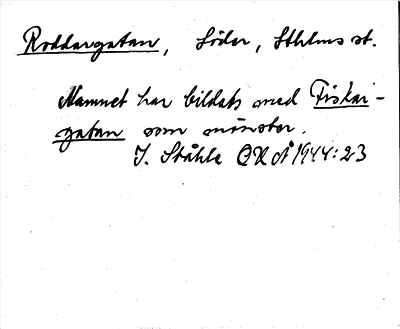 Roddargatan, Söder, Sthlms st.
Namnet har bildats med Fiskar-
gatan som mönster.
I. Ståhle OXÅ 1944:23